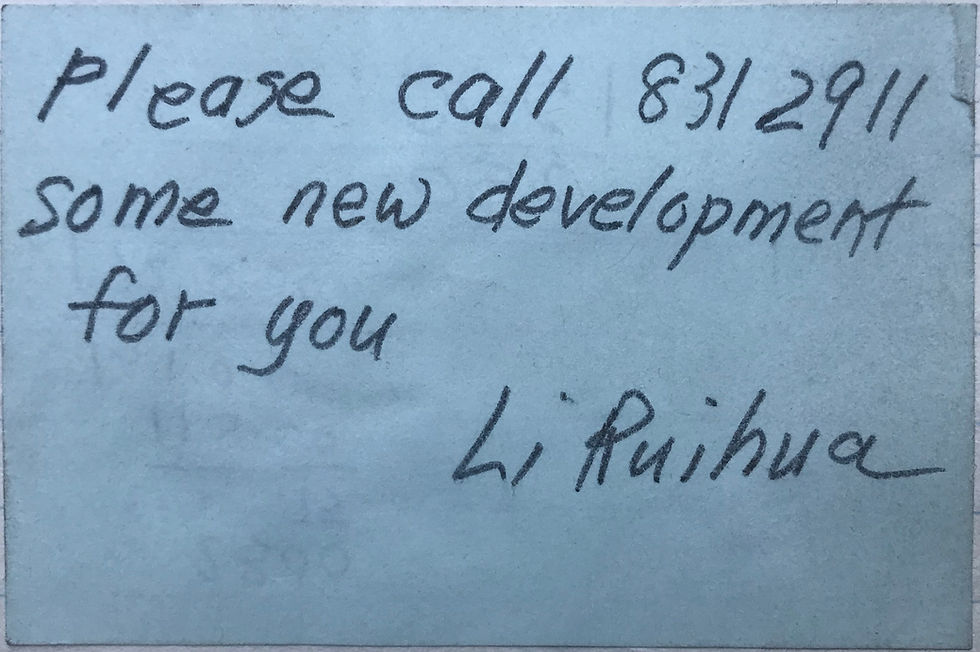 Please call 831 2911
some new development
for you
Li Ruihua